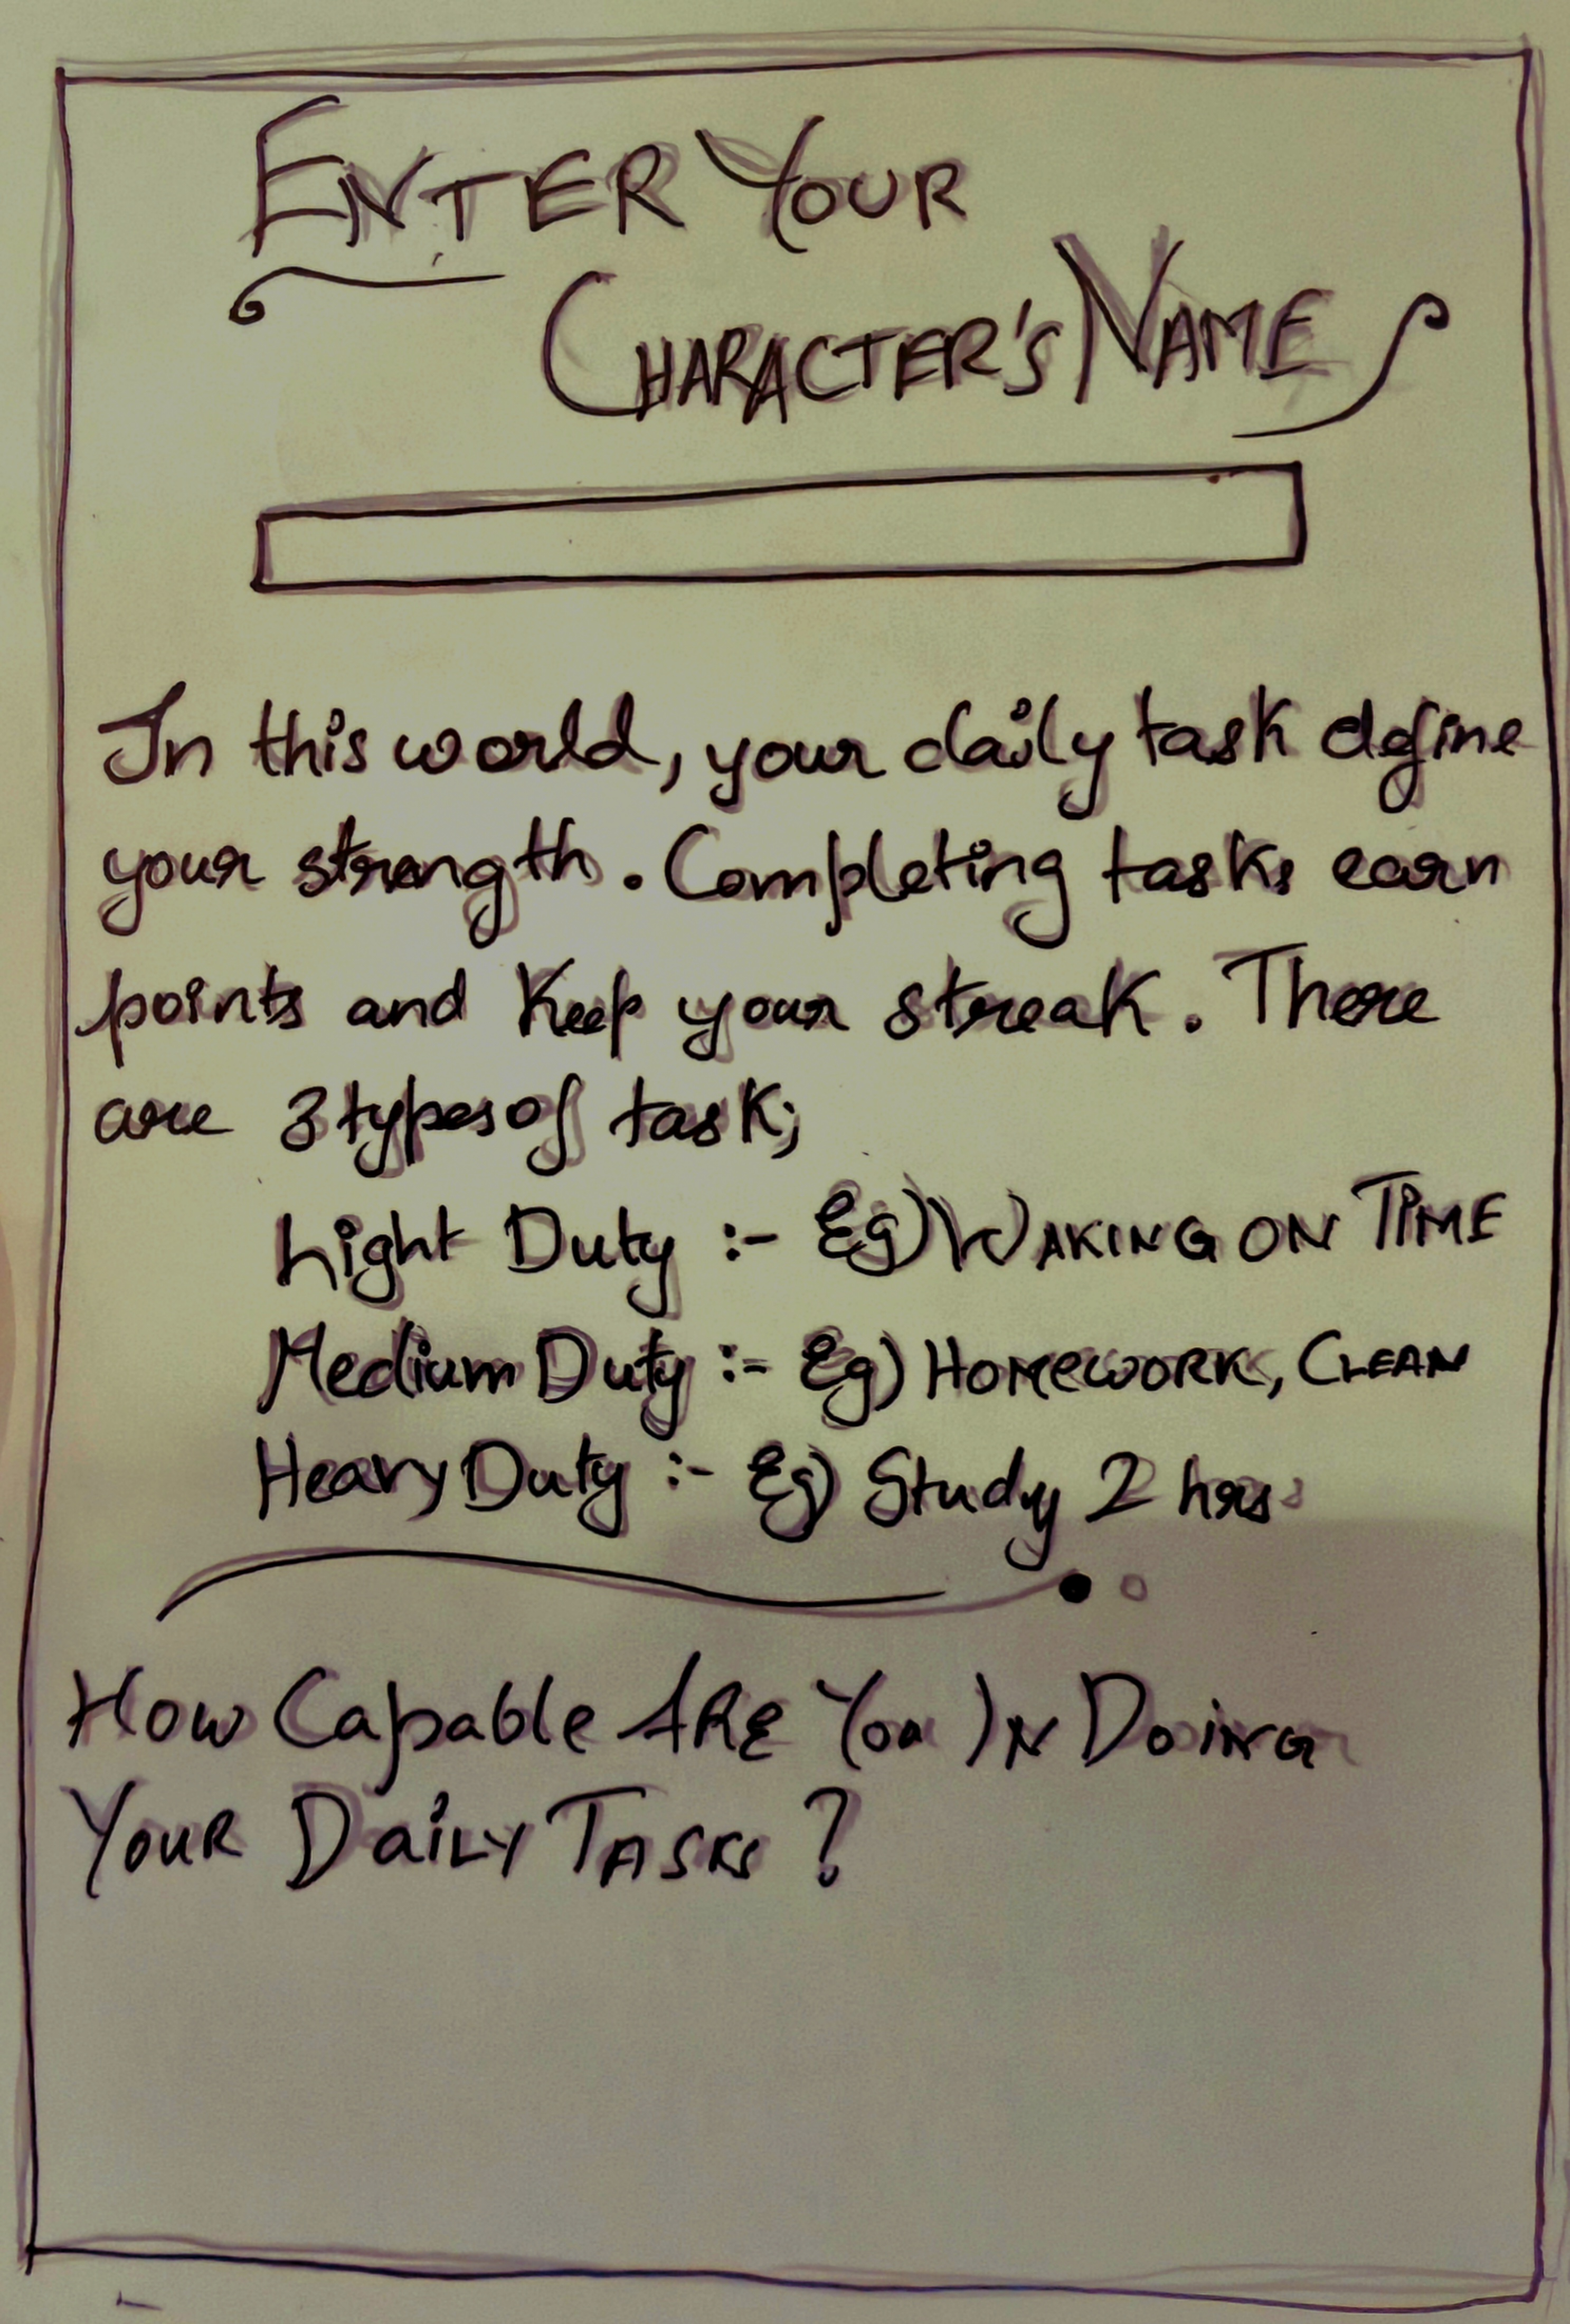 ENTER YOUR
CHARACTER'S NAME
In this world, your daily task define
your strength. Completing tasks earn
points and Keep your streak. There
are 3 types of task;
Light Duty :- Eg) WAKING ON TIME
Medium Duty :- Eg) HOMEWORK, CLEAN
Heavy Duty :- Eg) Study 2 hrs
How Capable ARE You IN DOING
YOUR DAILY TASKS?